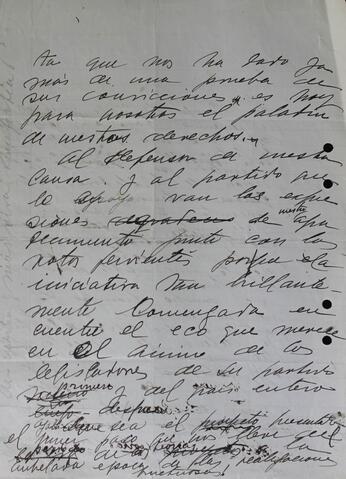 ta que nos ha dado ya
más de una prueba de
sus convicciones, es hoy
para nosotros el paladín
de nuestros derechos.
Al defensor de nuestra
causa y al partido que
lo apoya van las expre
siones de nuestro agra
decimiento junto con los
votos fervientes porque la
iniciativa tan brillante-
mente comenzada en
cuentre el eco que merece
en el ánimo de los
legisladores de su partido
primero y del país entero
después
que sea el
el primer paso que nos lleve a la
anhelada época de las realizaciones